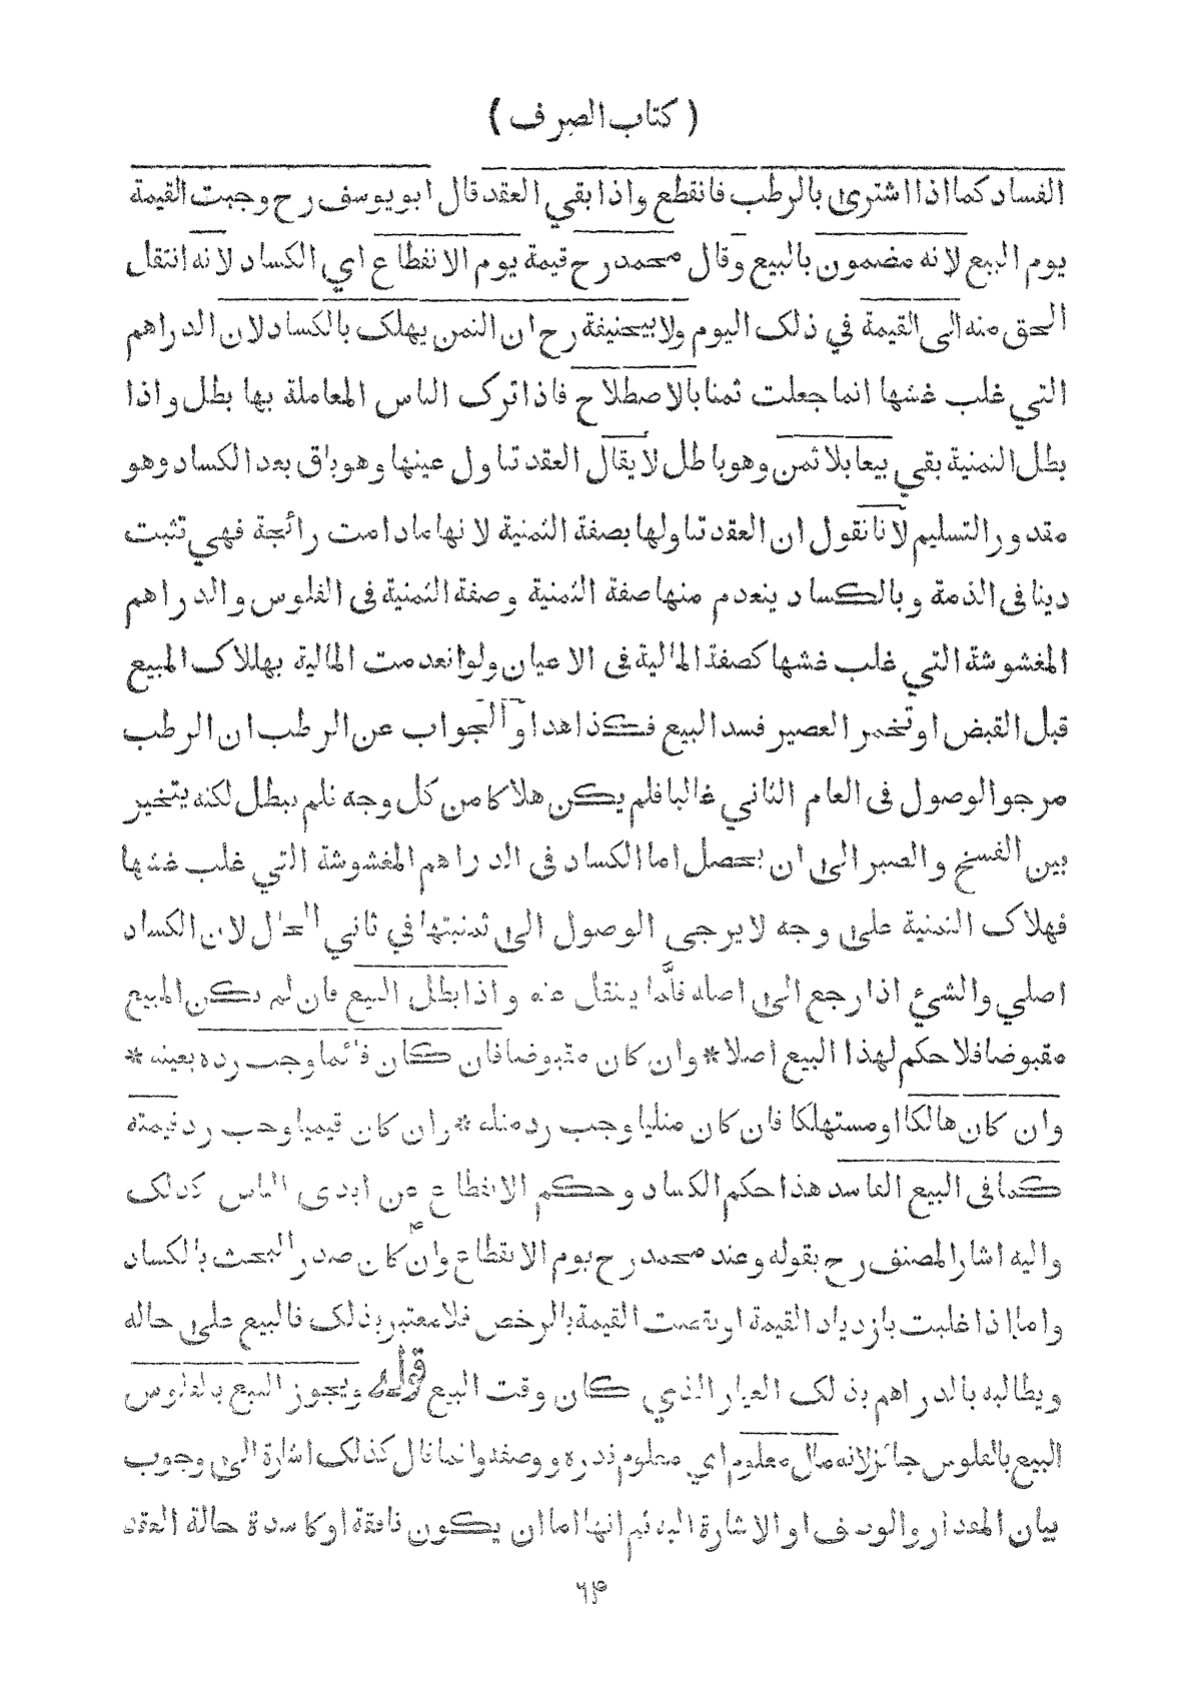 ( كتاب الصرف )
الفساد كما اذا اشترى بالرطب فانقطع واذا بقي العقد قال ابو يوسف رح وجبت القيمة
يوم البيع لانه مضمون بالبيع وقال محمد رح قيمة يوم الانقطاع اي الكساد لانه انتقل
الحق منه الى القيمة في ذلك اليوم ولابيحنيفة رح ان الثمن يهلك بالكساد لان الدراهم
التي غلب غشها انما جعلت ثمنا بالاصطلاح فاذا ترك الناس المعاملة بها بطل واذا
بطل الثمنية بقي بيعا بلا ثمن وهو باطل لا يقال العقد تناول عينها وهو باق بعد الكساد وهو
مقدور التسليم لانا نقول ان العقد تناولها بصفة الثمنية لانها ما دامت رائجة فهي تثبت
دينا في الذمة وبالكساد ينعدم منها صفة الثمنية وصفة الثمنية في الفلوس والدراهم
المغشوشة التي غلب غشها كصفة المالية في الاعيان ولو انعدمت المالية بهلاك المبيع
قبل القبض او تخمر العصير فسد البيع فكذا هذا والجواب عن الرطب ان الرطب
مرجو الوصول في العام الثاني غالبا فلم يكن هلاكا من كل وجه فلم يبطل لكنه يتخير
بين الفسخ والصبر الى ان يحصل اما الكساد في الدراهم المغشوشة التي غلب غشها
فهلاك الثمنية على وجه لا يرجى الوصول الى ثمنيتها في ثاني الحال لان الكساد
اصلي والشيء اذا رجع الى اصله قلما ينتقل عنه واذا بطل البيع فان لم يكن المبيع
مقبوضا فلا حكم لهذا البيع اصلا * وان كان مقبوضا فان كان قائما وجب رده بعينه *
وان كان هالكا او مستهلكا فان كان مثليا وجب رد مثله * وان كان قيميا وجب رد قيمته
كما في البيع الفاسد هذا حكم الكساد وحكم الانقطاع عن ايدى الناس كذلك
واليه اشار المصنف رح بقوله وعند محمد رح يوم الانقطاع وان كان صدر البحث بالكساد
واما اذا غلبت بازدياد القيمة او نقصت القيمة بالرخص فلا معتبر بذلك فالبيع على حاله
ويطالبه بالدراهم بذلك العيار الذي كان وقت البيع قوله ويجوز البيع بالفلوس
البيع بالفلوس جائز لانه مال معلوم اي معلوم قدره ووصفه وانما قال كذلك اشارة الى وجوب
بيان المقدار والوصف او الاشارة اليه ثم انها اما ان يكون نافقة او كاسدة حالة العقد